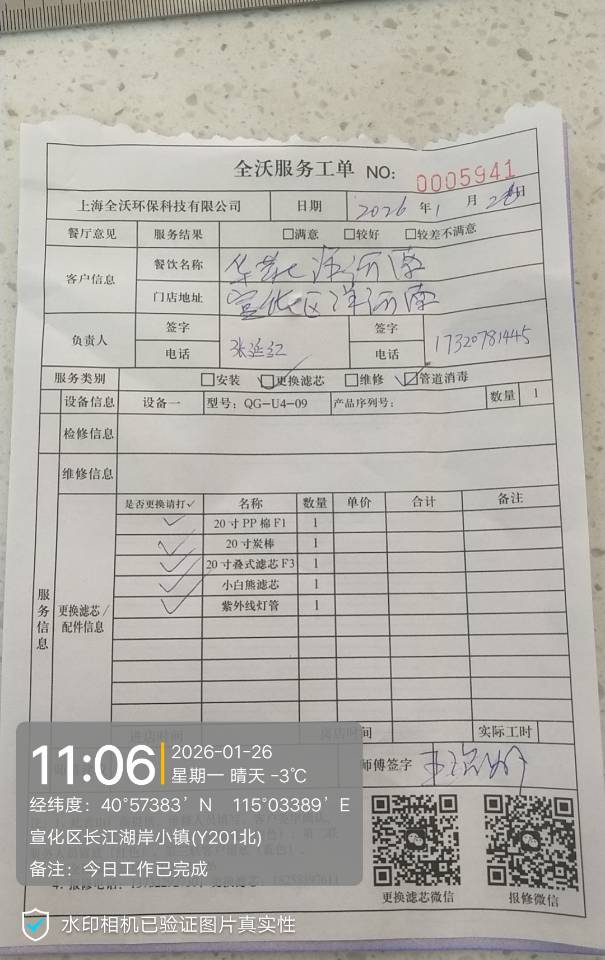 全沃服务工单 NO: 0005941
上海全沃环保科技有限公司 日期 2026 年 1 月 26 日
餐厅意见 服务结果 □满意 □较好 □较差不满意
客户信息
餐饮名称
门店地址 宣化区洋河南
负责人 签字 签字
电话 张延红 电话 17320781445
服务类别 □安装 ☑更换滤芯 □维修 ☑管道消毒
设备信息 设备一 型号: QG-U4-09 产品序列号: 数量 1
检修信息
维修信息
服务信息
更换滤芯/配件信息
是否更换请打✓ 名称 数量 单价 合计 备注
✓ 20寸PP棉F1 1
✓ 20寸炭棒 1
✓ 20寸叠式滤芯F3 1
✓ 小白熊滤芯 1
✓ 紫外线灯管 1
进店时间 离店时间 实际工时
师傅签字
11:06 2026-01-26
星期一 晴天 -3℃
经纬度: 40°57383'N 115°03389'E
宣化区长江湖岸小镇(Y201北)
备注: 今日工作已完成
更换滤芯微信 报修微信
水印相机已验证图片真实性